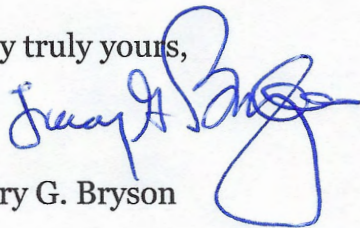 y truly yours,
ry G. Bryson